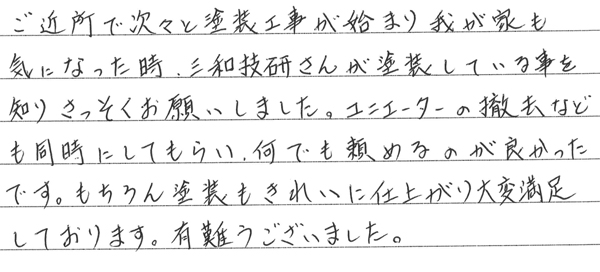 ご近所で次々と塗装工事が始まり我が家も
気になった時、三和技研さんが塗装している事を
知りさっそくお願いしました。ユニエーターの撤去など
も同時にしてもらい、何でも頼めるのが良かった
です。もちろん塗装もきれいに仕上がり大変満足
しております。有難うございました。